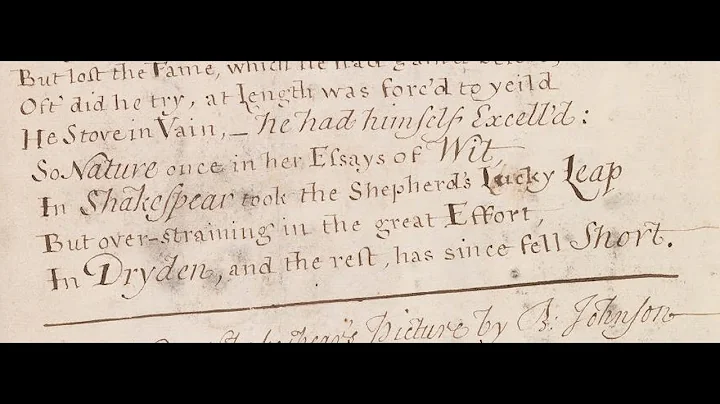 But lost the Fame, which he had
Oft' did he try, at Length was forc'd to yeild
He Stove in Vain,— he had himself Excell'd:
So Nature once in her Essays of Wit,
In Shakespear took the Shepherd's Lucky Leap
But over-straining in the great Effort,
In Dryden, and the rest, has since fell Short.
Picture by B: Johnson